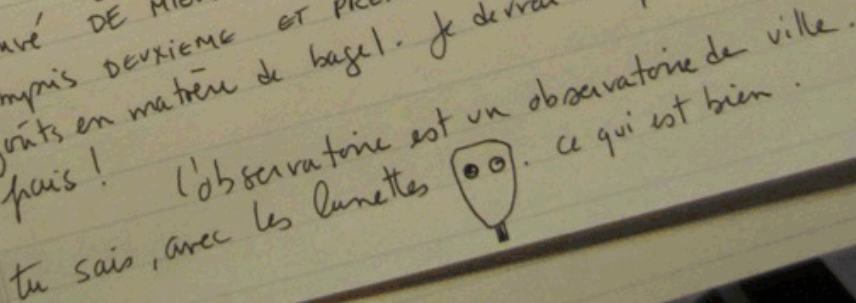 DE
DEUXIEME ET
en matière de bagel. Je
frais! l'observatoire est un observatoire de ville.
tu sais, avec les lunettes . ce qui est bien.